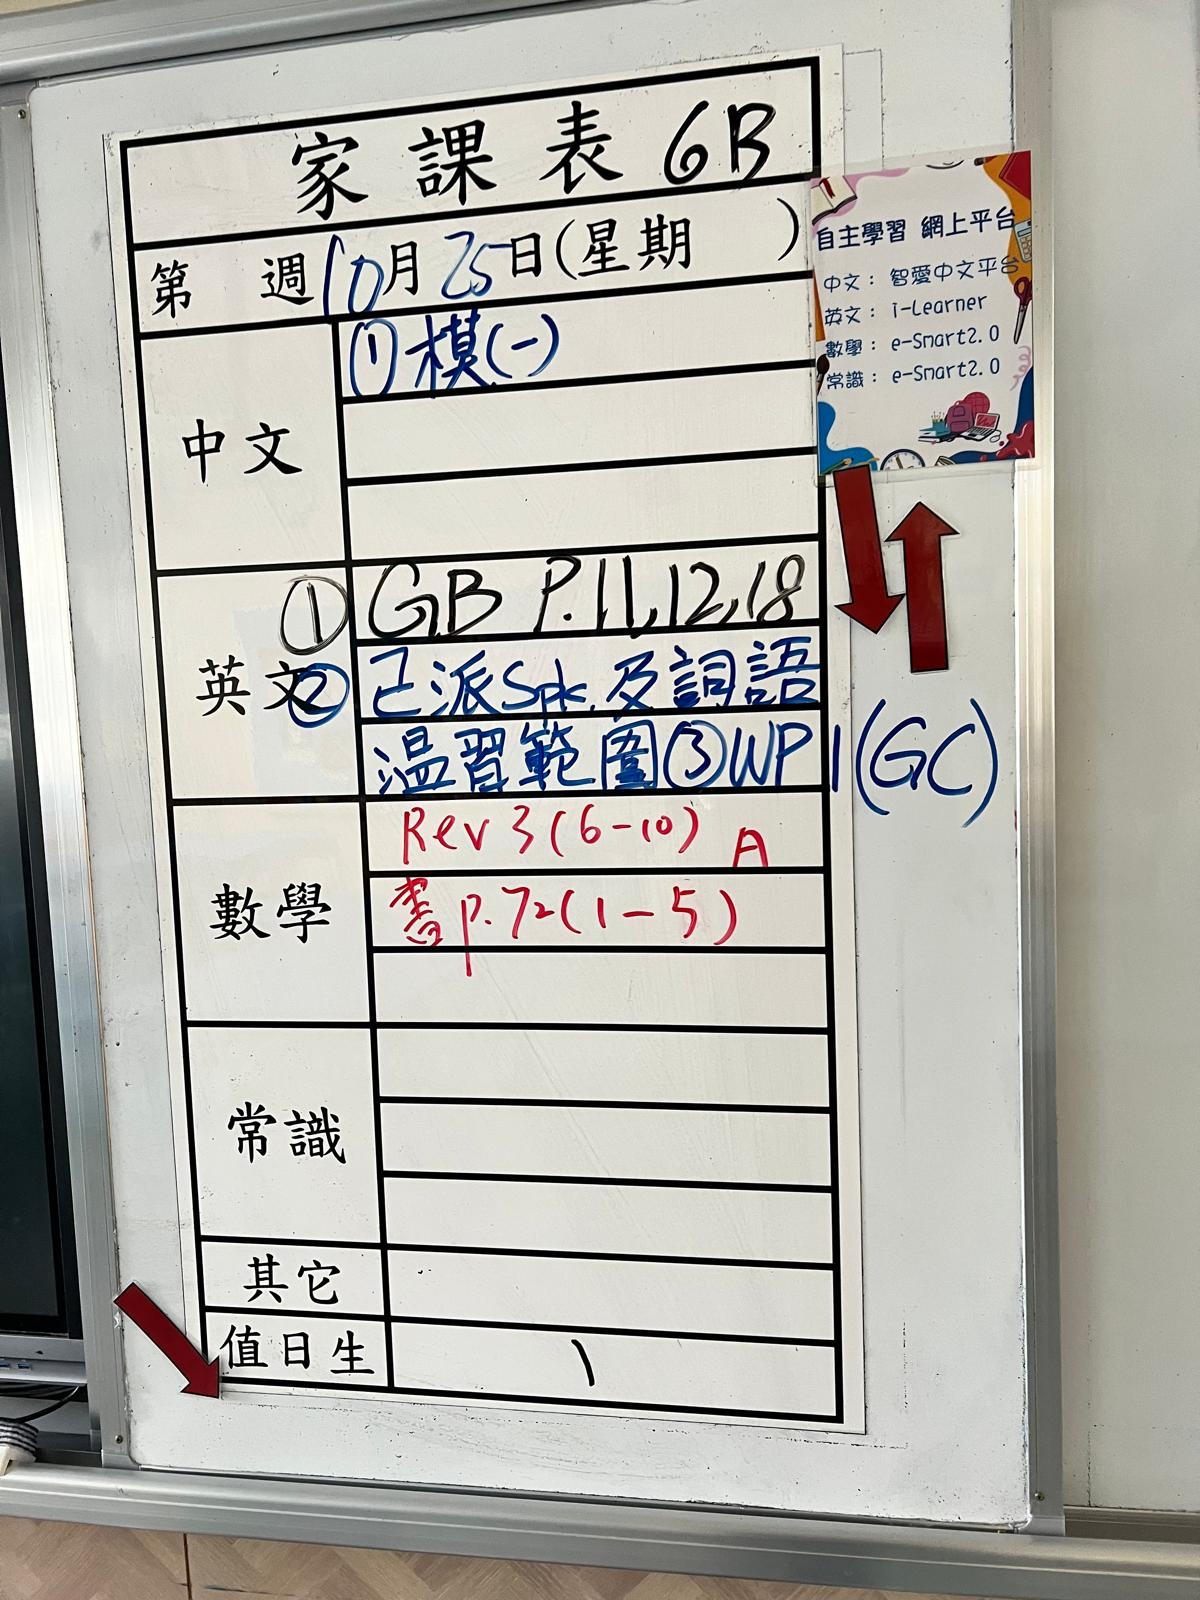 家課表 6B
第 週 10月25日(星期 )
中文
① 模(一)
英文
① GB P.11,12,18
② 已派Spk.及詞語
温習範圍③WP1(GC)
數學
Rev 3(6-10) A
書p.72(1-5)
常識
其它
值日生
1
自主學習 網上平台
中文: 智愛中文平台
英文: i-Learner
數學: e-Smart2.0
常識: e-Smart2.0